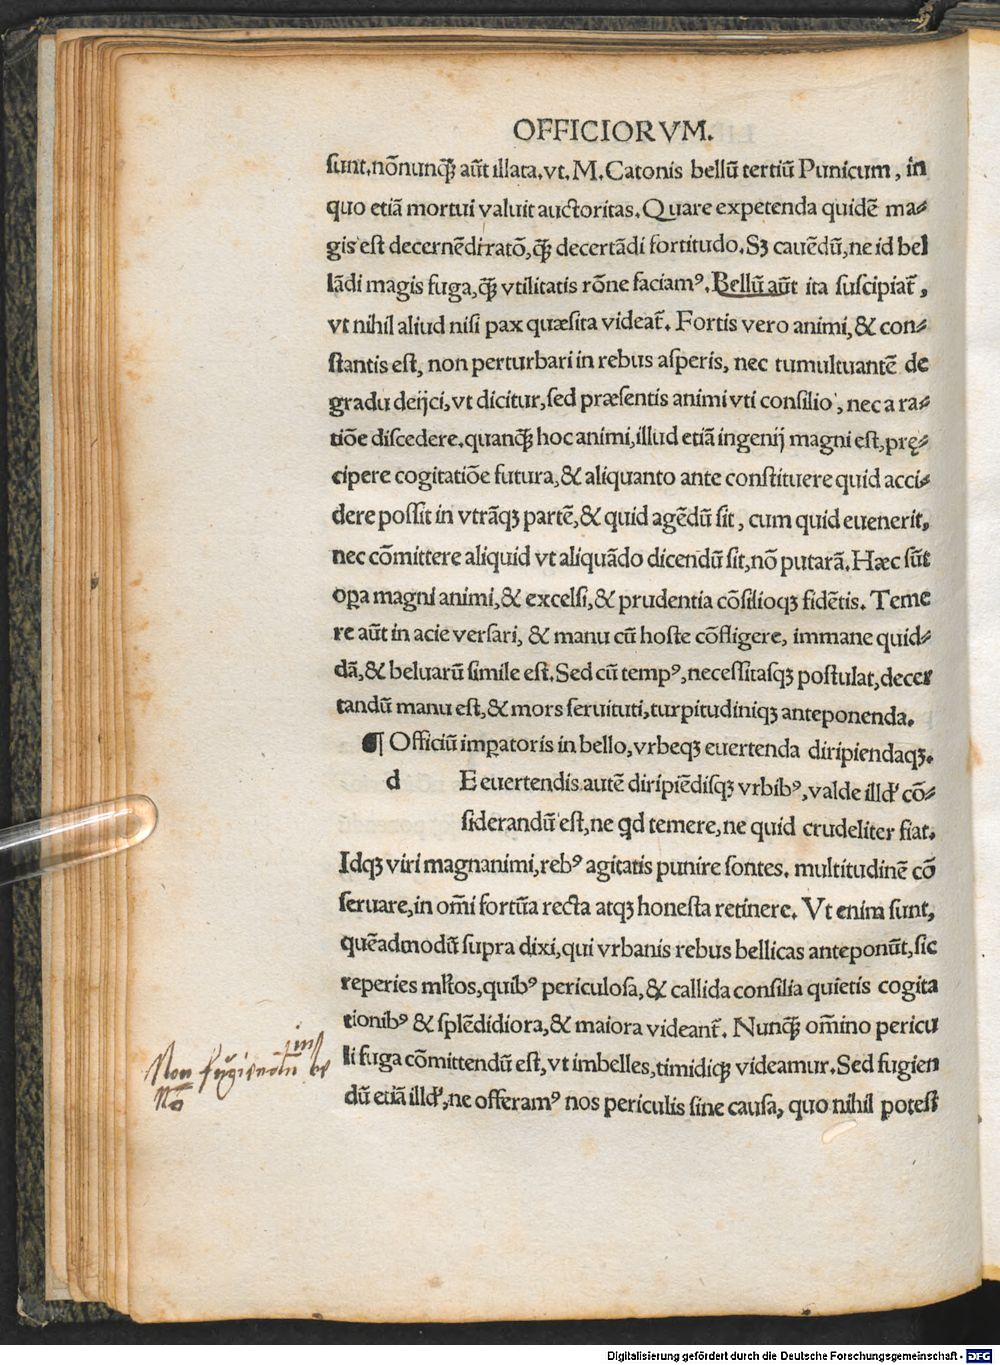 OFFICIORVM.
sunt.nõnunq̃ꝫ aũt illata.vt.M.Catonis bellũ tertiũ Punicum, in
quo etiã mortui valuit auctoritas.Quare expetenda quidẽ ma⸗
gis est decernẽdi ratõ,q̃ꝫ decertãdi fortitudo.Sꝫ cauẽdũ,ne id bel
lãdi magis fuga,q̃ꝫ vtilitatis rõne faciamꝰ.Bellũ aũt ita suscipiat̃,
vt nihil aliud nisi pax quæsita videat̃. Fortis vero animi,& con⸗
stantis est, non perturbari in rebus asperis, nec tumultuantẽ de
gradu deijci,vt dicitur,sed præsentis animi vti consilio, nec a ra⸗
tiõe discedere.quanq̃ꝫ hoc animi,illud etiã ingenij magni est,prę⸗
cipere cogitatiõe futura,& aliquanto ante constituere quid acci⸗
dere possit in vtrãqꝫ partẽ,& quid agẽdũ sit, cum quid euenerit,
nec cõmittere aliquid vt aliquãdo dicendũ sit,nõ putarã.Hæc sũt
opa magni animi,& excelsi,& prudentia cõsilioqꝫ fidẽtis. Teme
re aũt in acie versari, & manu cũ hoste cõfligere, immane quid⸗
dã,& beluarũ simile est.Sed cũ tempꝰ,necessitasqꝫ postulat,decer
tandũ manu est,& mors seruituti,turpitudiniqꝫ anteponenda.
¶ Officiũ impatoris in bello,vrbeqꝫ euertenda diripiendaqꝫ.
d E euertendis autẽ diripiẽdisqꝫ vrbibꝰ,valde illd' cõ⸗
siderandũ est,ne qd temere,ne quid crudeliter fiat.
Idqꝫ viri magnanimi,rebꝰ agitatis punire sontes. multitudinẽ cõ
seruare,in om̃i fortũa recta atqꝫ honesta retinere. Vt enim sunt,
quẽadmodũ supra dixi,qui vrbanis rebus bellicas anteponũt,sic
reperies ml'tos,quibꝰ periculosa,& callida consilia quietis cogita
tionibꝰ & splẽdidiora,& maiora videant̃. Nunq̃ꝫ om̃ino pericu
li fuga cõmittendũ est,vt imbelles,timidiqꝫ videamur.Sed fugien
dũ etiã illd',neofferamꝰ nos periculis sine causa, quo nihil potest
Non
Digitalisierung gefördert durch die Deutsche Forschungsgemeinschaft - DFG